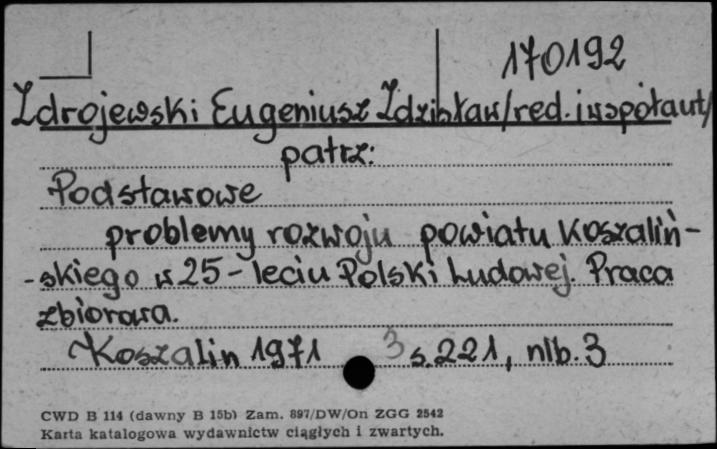 170192
Zdrojewski Eugeniusz Zdzisław/red. i współaut/
patrz:
Podstawowe
problemy rozwoju powiatu Koszaliń-
-skiego w 25-leciu Polski Ludowej. Praca
zbiorowa.
Koszalin 1971 s. 221, nlb. 3
CWD B 114 (dawny B 15b) Zam. 897/DW/On ZGG 2542
Karta katalogowa wydawnictw ciągłych i zwartych.